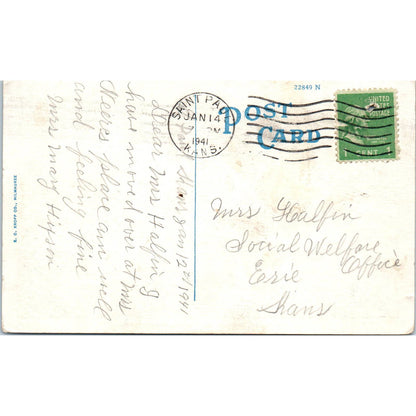 22849 N
POST
CARD
SAINT PAUL
JAN 14
1941
KANS.
UNITED
STATES
POSTAGE
1 CENT 1
Jan 12th 1941
Dear Mrs Halfin I
have moved over at Mrs
place am well
and feeling fine
Mrs Mary Hipson
E. C. KROPP CO., MILWAUKEE
Mrs Halfin
Social Welfare
Office
Erie
Kans